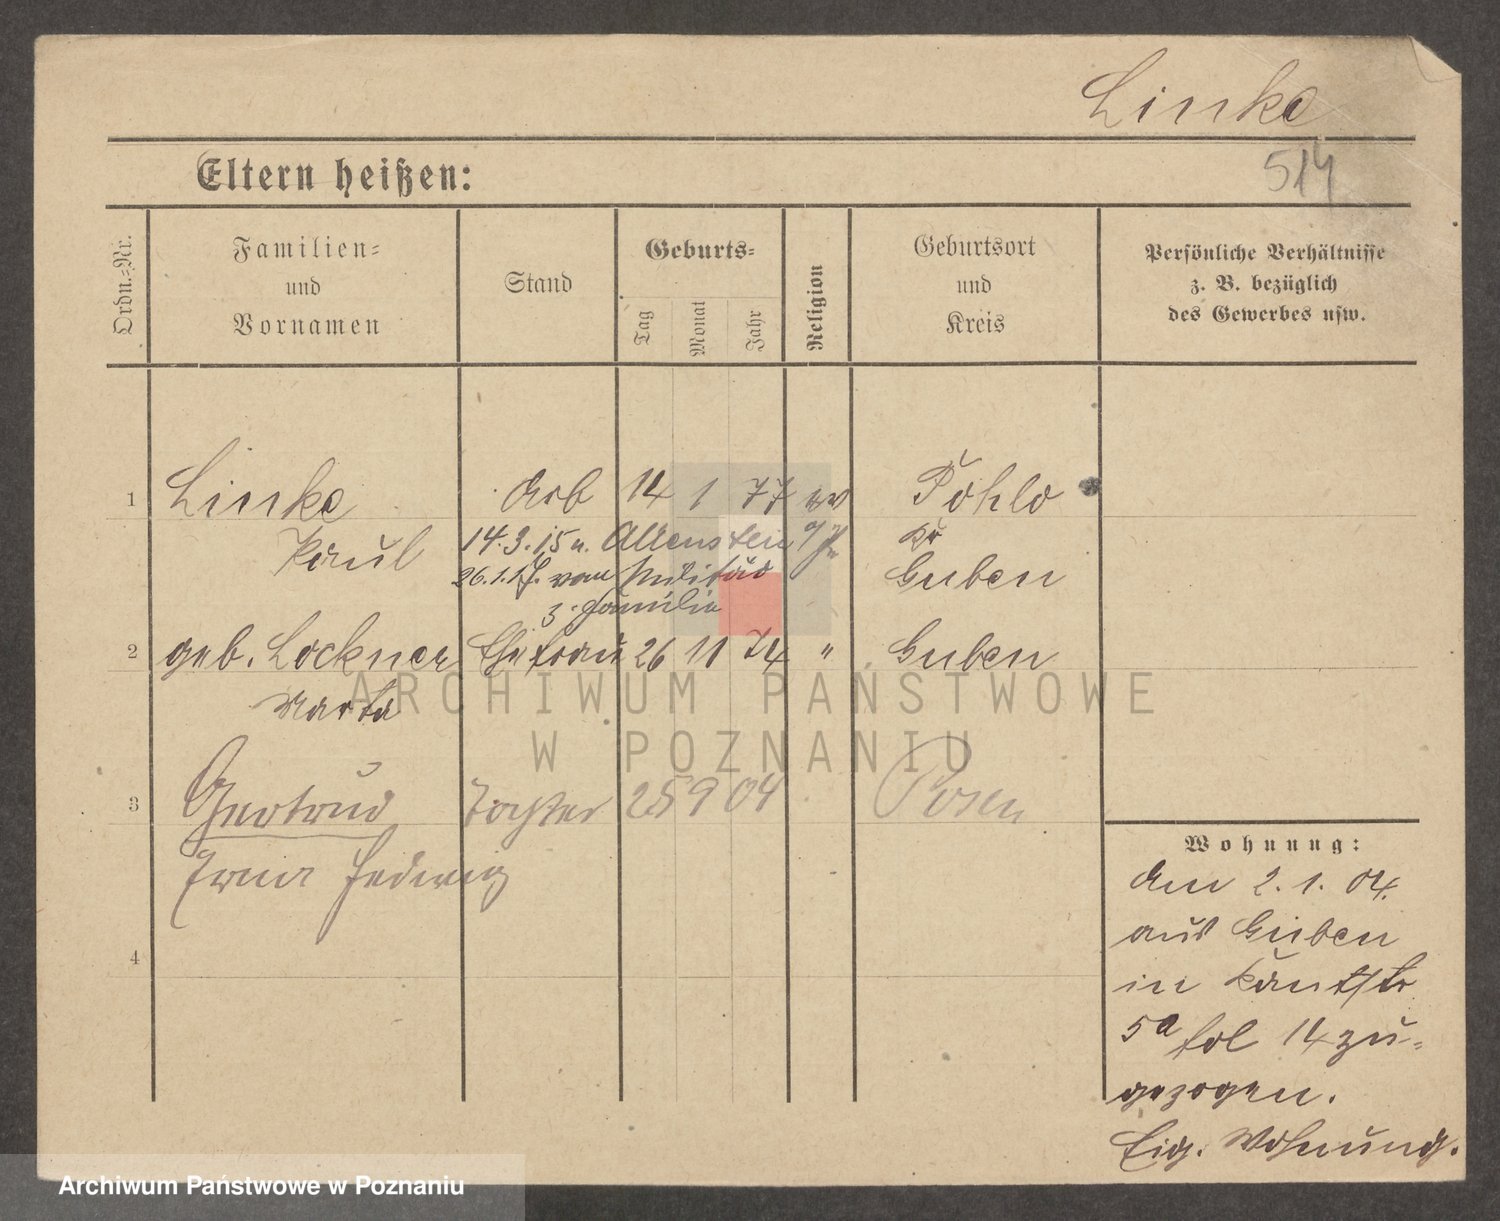 Linke
514
Eltern heißen:
Ordn.-Nr.
Familien-
und
Vornamen
Stand
Geburts-
Tag
Monat
Jahr
Religion
Geburtsort
und
Kreis
Persönliche Verhältnisse
z. B. bezüglich
des Gewerbes usw.
1 Linke Arb 14 1 77 ev Pohlo
Paul
14.3.15 n. Allenstein
Kr
26.1.17. vom Militär
Guben
z. Familie
2 geb. Lockner Ehefrau 26 11 74 " Guben
Marta
ARCHIWUM PAŃSTWOWE
W POZNANIU
3 Gertrud Tochter 25 9 04 Posen
Irma Hedwig
4
Wohnung:
Am 2. 1. 04.
aus Guben
in Kantstr
5a fol 14 zu-
gezogen.
Eig. Wohnung.
Archiwum Państwowe w Poznaniu